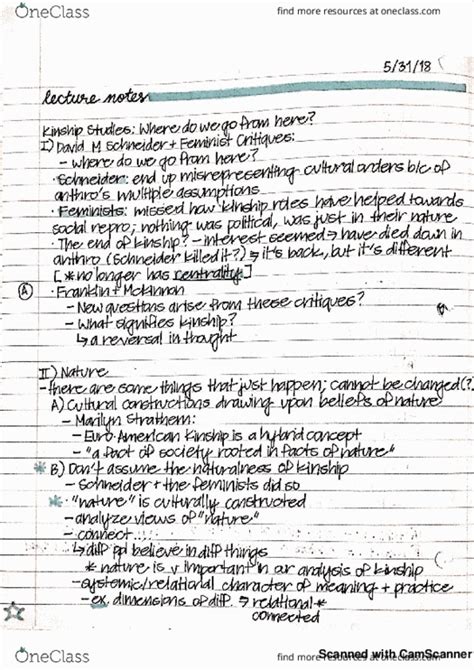 OneClass
find more resources at oneclass.com
5/31/18
lecture notes
Kinship Studies: Where do we go from here?
I) David M Schneider + Feminist Critiques:
- where do we go from here?
· Schneider: end up misrepresenting cultural orders b/c of
anthro's multiple assumptions
· Feminists: missed how kinship roles have helped towards
social repro; nothing was political, was just in their nature
· The end of kinship? - interest seemed → have died down in
anthro (Schneider killed it?) → it's back, but it's different
[* no longer has centrality.]
Ⓐ · Franklin + McKinnon
- New questions arise from these critiques?
- What signifies kinship?
↳ a reversal in thought
II) Nature
- there are some things that just happen; cannot be changed(?)
A) Cultural constructions drawing upon beliefs of nature
- Marilyn Strathern:
- Euro-American kinship is a hybrid concept
- "a fact of society rooted in facts of nature"
* B) Don't assume the naturalness of kinship
- Schneider + the feminists did so
* · "nature" is culturally constructed
- analyze views of "nature"
- connect...
↳ diff ppl believe in diff things
* nature is v important in our analysis of kinship
- systemic/relational character of meaning + practice
- ex. dimensions of diff. → relational *
connected
Scanned with CamScanner
OneClass
find more resources at oneclass.com